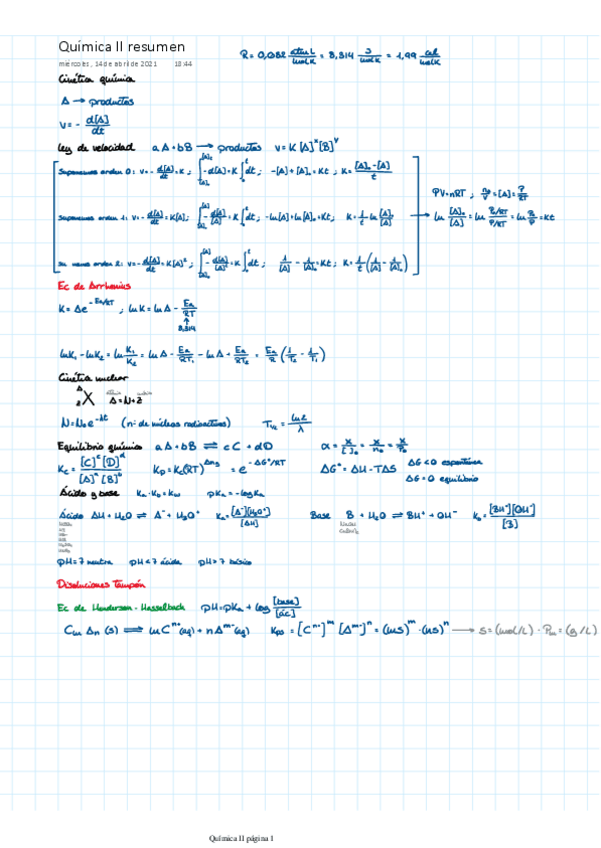 Química II resumen
miércoles, 14 de abril de 2021 18:44
R = 0,082 atm·L/mol·K = 8,314 J/mol·K = 1,99 cal/mol·K
Cinética química
A → productos
v = - d[A]/dt
Ley de velocidad aA + bB → productos v = K [A]^x [B]^y
Suponemos orden 0: v = - d[A]/dt = K ; ∫ - d[A] = K ∫ dt ; -[A] + [A]₀ = Kt ; K = ([A]₀ - [A])/t
PV = nRT ; n₀/V = [A] = P/RT
Suponemos orden 1: v = - d[A]/dt = K[A] ; ∫ - d[A]/[A] = K ∫ dt ; -ln[A] + ln[A]₀ = Kt ; K = 1/t ln [A]₀/[A]
→ ln [A]₀/[A] = ln (P₀/RT)/(P/RT) = ln P₀/P = Kt
orden 2: v = - d[A]/dt = K[A]² ; ∫ - d[A]/[A]² = K ∫ dt ; 1/[A] - 1/[A]₀ = Kt ; K = 1/t (1/[A] - 1/[A]₀)
Ec de Arrhenius
K = Ae^(-Ea/RT) ; ln K = ln A - Ea/RT
8,314
lnK₁ - lnK₂ = ln K₁/K₂ = ln A - Ea/RT₁ - ln A + Ea/RT₂ = Ea/R (1/T₂ - 1/T₁)
Cinética nuclear
A Z X A = N + Z
N = N₀e^(-λt) (nº de núcleos radioactivos) T₁/₂ = ln2/λ
Equilibrio químico aA + bB ⇌ cC + dD α = x/[ ]₀ = x/n₀ = x/P₀
Kc = [C]^c [D]^d / [A]^a [B]^b Kp = Kc(RT)^Δng = e^(-ΔG°/RT) ΔG° = ΔH - TΔS ΔG < 0 espontánea
ΔG = 0 equilibrio
Ácido y base Ka · Kb = Kw pKa = -logKa
Ácido AH + H₂O ⇌ A⁻ + H₃O⁺ Ka = [A⁻][H₃O⁺]/[AH] Base B + H₂O ⇌ BH⁺ + OH⁻ Kb = [BH⁺][OH⁻]/[B]
pH = 7 neutra pH < 7 ácida pH > 7 básico
Disoluciones tampón
Ec de Henderson - Hasselbach pH = pKa + log [base]/[ác]
Cm An (s) ⇌ mC^n+ (aq) + nA^m- (aq) Kps = [C^n+]^m [A^m-]^n = (ms)^m · (ns)^n → s = (mol/L) · Pm = (g/L)
Química II página 1